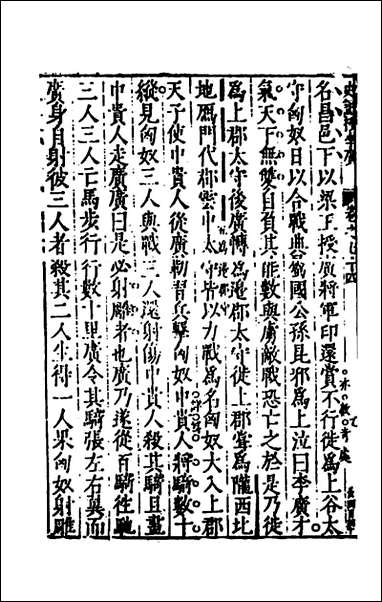 名昌邑下以梁王授廣將軍印還賞不行徙為上谷太
守匈奴日以合戰典屬國公孫昆邪為上泣曰李廣才
氣天下無雙自負其能數與虜敵戰恐亡之於是乃徙
為上郡太守後廣轉為邊郡太守徙上郡嘗為隴西北
地鴈門代郡雲中太守皆以力戰為名匈奴大入上郡
天子使中貴人從廣勒習兵擊匈奴中貴人將騎數十
縱見匈奴三人與戰三人還射傷中貴人殺其騎且盡
中貴人走廣廣曰是必射雕者也廣乃遂從百騎往馳
三人三人亡馬步行行數十里廣令其騎張左右翼而
廣身自射彼三人者殺其二人生得一人果匈奴射雕